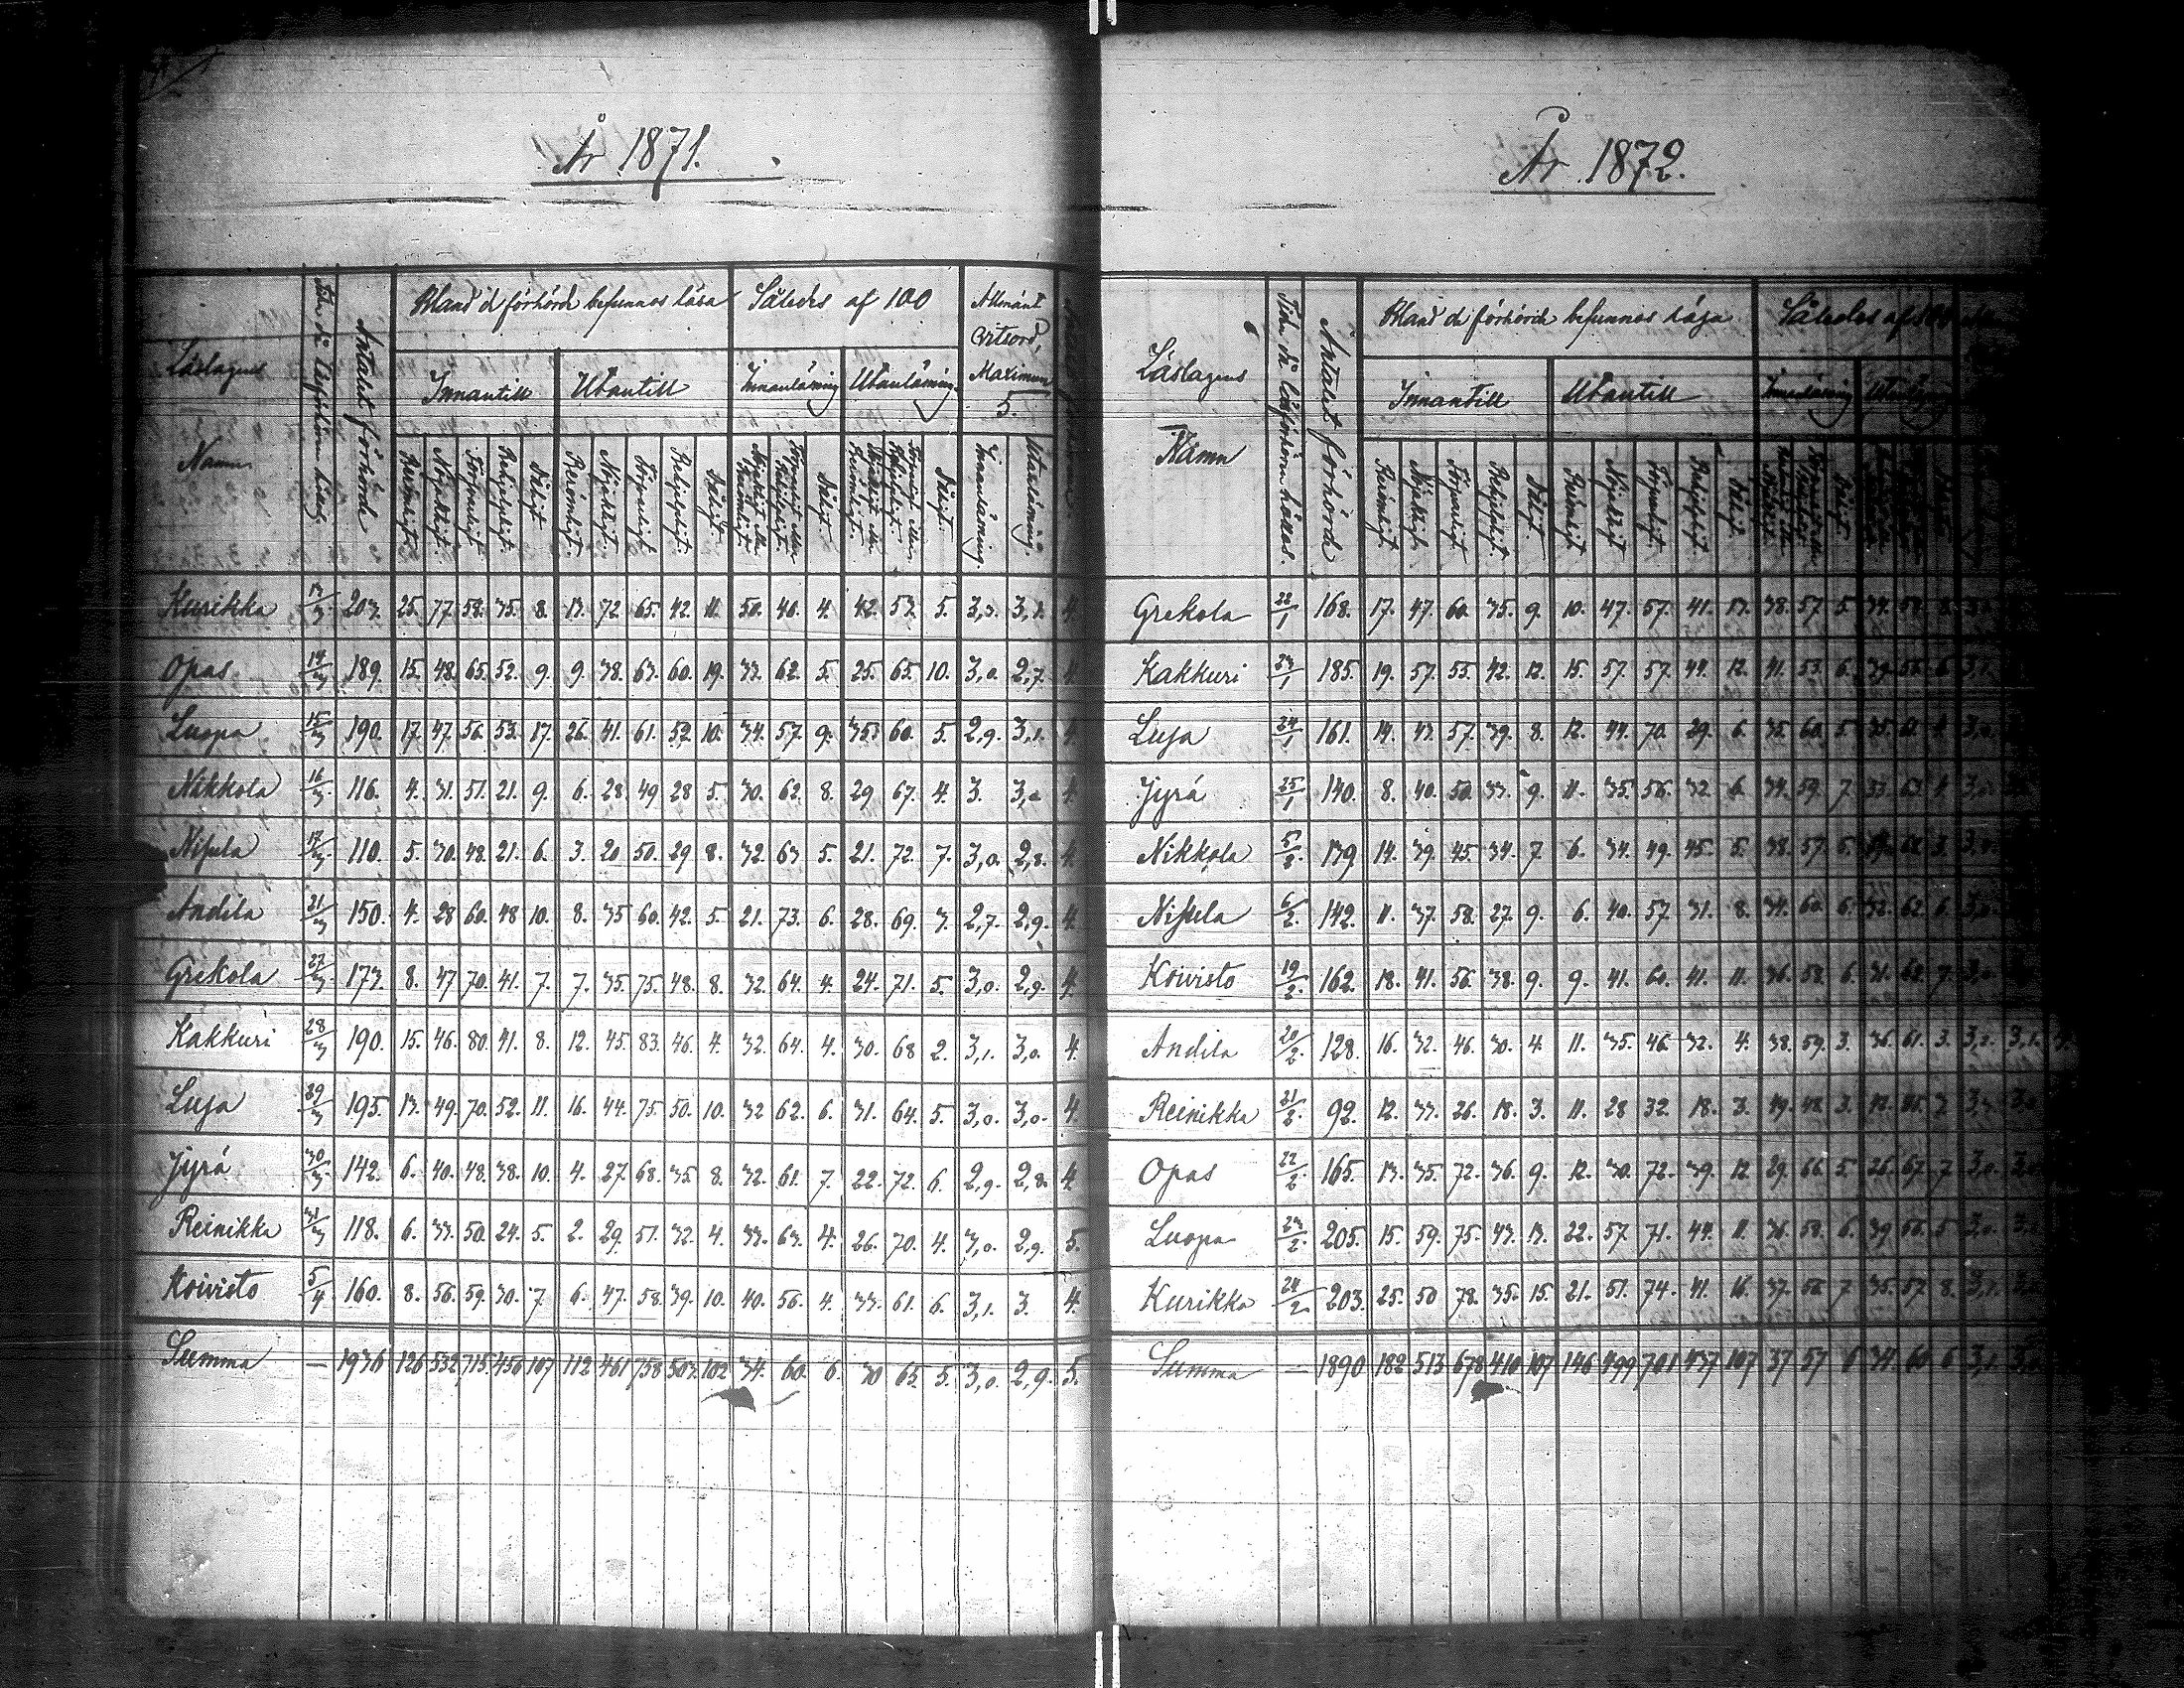 År 1871.
Läslagens Namn
Antalet förhörde
Bland de förhörde befunnos läsa
Således af 100
Allmänt Vitsord, Maximum 5.
Innantill Utantill Innanläsning Utanläsning
Berömligt. Nöjaktigt. Försvarligt. Behjelpligt. Dåligt. Berömligt. Nöjaktigt. Försvarligt. Behjelpligt. Dåligt.
Innanläsning. Utanläsning.
Kurikka 13/3 203. 25. 77. 58. 35. 8. 13. 72. 65. 42. 11. 50. 46. 4. 42. 53. 5. 3,3. 4
Opas 14/3 189. 15. 48. 65. 52. 9. 9. 38. 63. 60. 19. 33. 62. 5. 25. 65. 10. 3,0. 2,7. 4
Luopa 15/3 190. 17. 47. 56. 53. 17. 26. 41. 61. 52. 10. 34. 57. 9. 35. 60. 5. 2,9. 3,1. 4
Nikkola 16/3 116. 4. 31. 51. 21. 9. 6. 28. 49 28 5. 30. 62. 8. 29 67. 4. 3. 3,0 4
Nisula 17/3 110. 5. 30. 48. 21. 6. 3. 20 50. 29 8. 32. 63 5. 21. 72. 7. 3,0. 2,8. 4
Andila 21/3 150. 4. 28 60. 48 10. 8. 35 60. 42. 5. 21. 73. 6. 28. 69. 3. 2,7. 2,9. 4
Grekola 27/3 173. 8. 47 70. 41. 7. 7. 35. 75. 48. 8. 32. 64. 4. 24. 71. 5. 3,0. 2,9. 4.
Kakkuri 28/3 190. 15. 46. 80. 41. 8. 12. 45. 83. 46. 4. 32. 64. 4. 30. 68 2. 3,1. 3,0. 4.
Luja 29/3 195. 13. 49. 70. 52. 11. 16. 44. 75. 50. 10. 32 62. 6. 31. 64. 5. 3,0. 3,0. 4.
Jyrä 30/3 142. 6. 40. 48. 38. 10. 4. 27. 68. 35. 8. 32. 61. 7. 22. 72. 6. 2,9. 2,8. 4.
Reinikka 31/3 118. 6. 33. 50. 24. 5. 2. 29. 51. 32. 4. 33. 63. 4. 26. 70. 4. 3,0. 2,9. 5.
Koivisto 5/4 160. 8. 56. 59. 30. 7 6. 47. 58. 39. 10. 40. 56. 4. 33. 61. 6. 3,1. 3. 4.
Summa — 1936 126 532 715 456 107 112 461 758 503 102 34. 60. 6. 30 65. 5. 3,0. 2,9. 5.
År 1872.
Läslagens Namn
Tiden då läsförhören hållos.
Antalet förhörde
Bland de förhörde befunnos läsa
Således af 100
Innantill Utantill Innanläsning
Berömligt. Nöjaktigt. Försvarligt. Behjelpligt. Dåligt. Berömligt Nöjaktigt Försvarligt. Behjelpligt Dåligt.
Grekola 22/1 168. 17. 47. 60. 35. 9. 10. 47. 57. 41. 13. 38. 57. 5
Kakkuri 23/1 185. 19. 57. 55. 42. 12. 15. 57. 57. 44. 12. 41. 53. 6.
Luja 24/1 161. 14. 43. 57. 39. 8. 12. 44. 70. 29. 6. 35. 60. 5
Jyrä 25/1 140. 8. 40. 50. 33. 9. 11. 35. 56. 32 6. 34. 59. 7 33. 63 4
Nikkola 5/2 139 14. 39. 45. 34. 7. 6. 34. 49. 45. 5. 38. 57. 5.
Nisula 6/2. 142. 11. 37. 58. 27. 9. 6. 40. 57. 31. 8. 34. 60. 6. 32. 62. 6.
Koivisto 19/2. 162. 18. 41. 56. 38. 9. 9. 41. 60. 41. 11. 36. 58. 6.
Andila 20/2. 128. 16. 32. 46. 30. 4. 11. 35. 46. 32. 4. 38. 59. 3. 36. 61. 3. 3,2. 3,1.
Reinikka 21/2. 92. 12. 33. 26. 18. 3. 11. 28 32. 18. 3.
Opas 22/2 165. 13. 35. 72. 36. 9. 12. 30. 72. 39. 12 29. 66. 5 26. 67. 7 3,0.
Luopa 23/2. 205. 15. 59. 75. 43. 13. 22. 57. 71. 44. 11. 36. 58. 6. 39 56. 5
Kurikka 24/2 203. 25. 50 78. 35. 15. 21. 51. 74. 41. 16. 37. 56 7 35. 57 8. 3,1.
Summa — 1890 182 513 678 410 107 146 499 701 437 107 37 57 6 34 60 6 3,1.